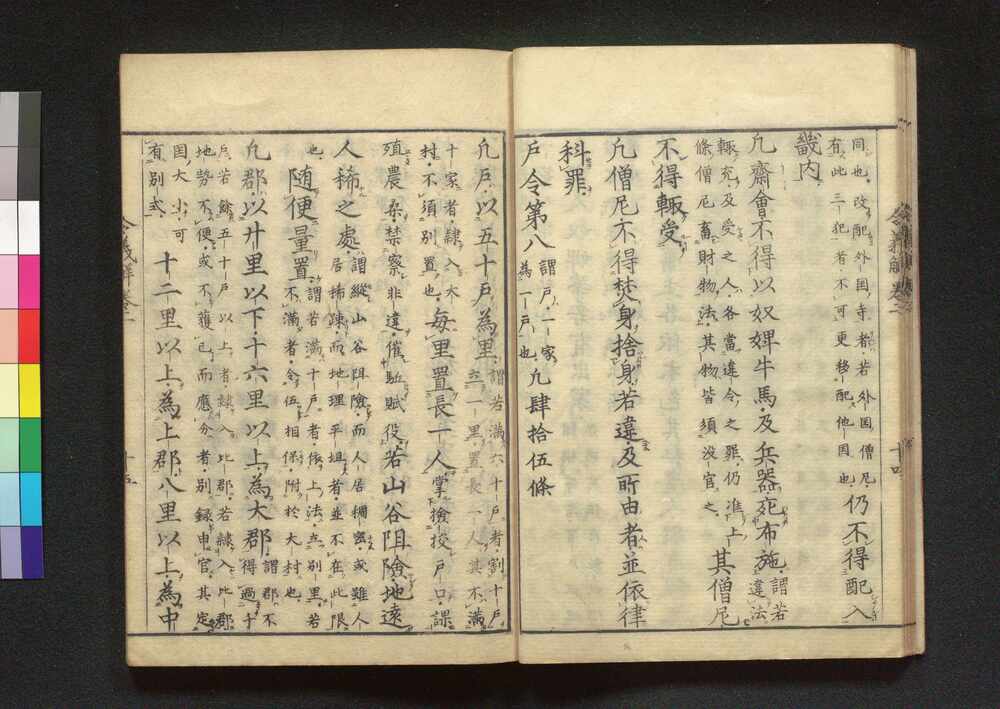 同也。改配外国寺者。若外国僧尼。
有此三犯者。不可更移配他国也。仍不得配入
畿内。
凢齋會不得以奴婢牛馬。及兵器充布施。謂若違法
輙充。及受之人。各當違令之罪。仍准上
條。僧尼畜財物法。其物皆須没官之。其僧尼
不得輙受。
凢僧尼不得焚身捨身。若違。及所由者。並依律
科罪。
戸令第八謂戸。一家
為一戸也。凢肆拾伍條
凢戸。以五十戸。為里。謂若満六十戸者。割十戸
立一里。置長一人。其不満
十家者。隷入大
村。不須別置也。毎里置長一人。掌撿挍戸口。課
殖農桑。禁察非違。催駈賦役。若山谷阻險。地遠
人稀之處。謂縱山谷阻險。而人居稠密。或雖人
居稀踈。而地理平坦者。並不在此限
也。随便量置。謂若満十戸者。依上法。立別里。若
不満者。令伍相保。附於大村也。
凢郡。以廿里以下。十六里以上。為大郡。謂郡不
得過千
戸。若餘五十戸以上者。隷入比郡。若隷入比郡。
地勢不便。或不獲已而應分者。別録申官。其定
国大小。可
有別式。十二里以上。為上郡。八里以上。為中
令義解巻二
十四
十五